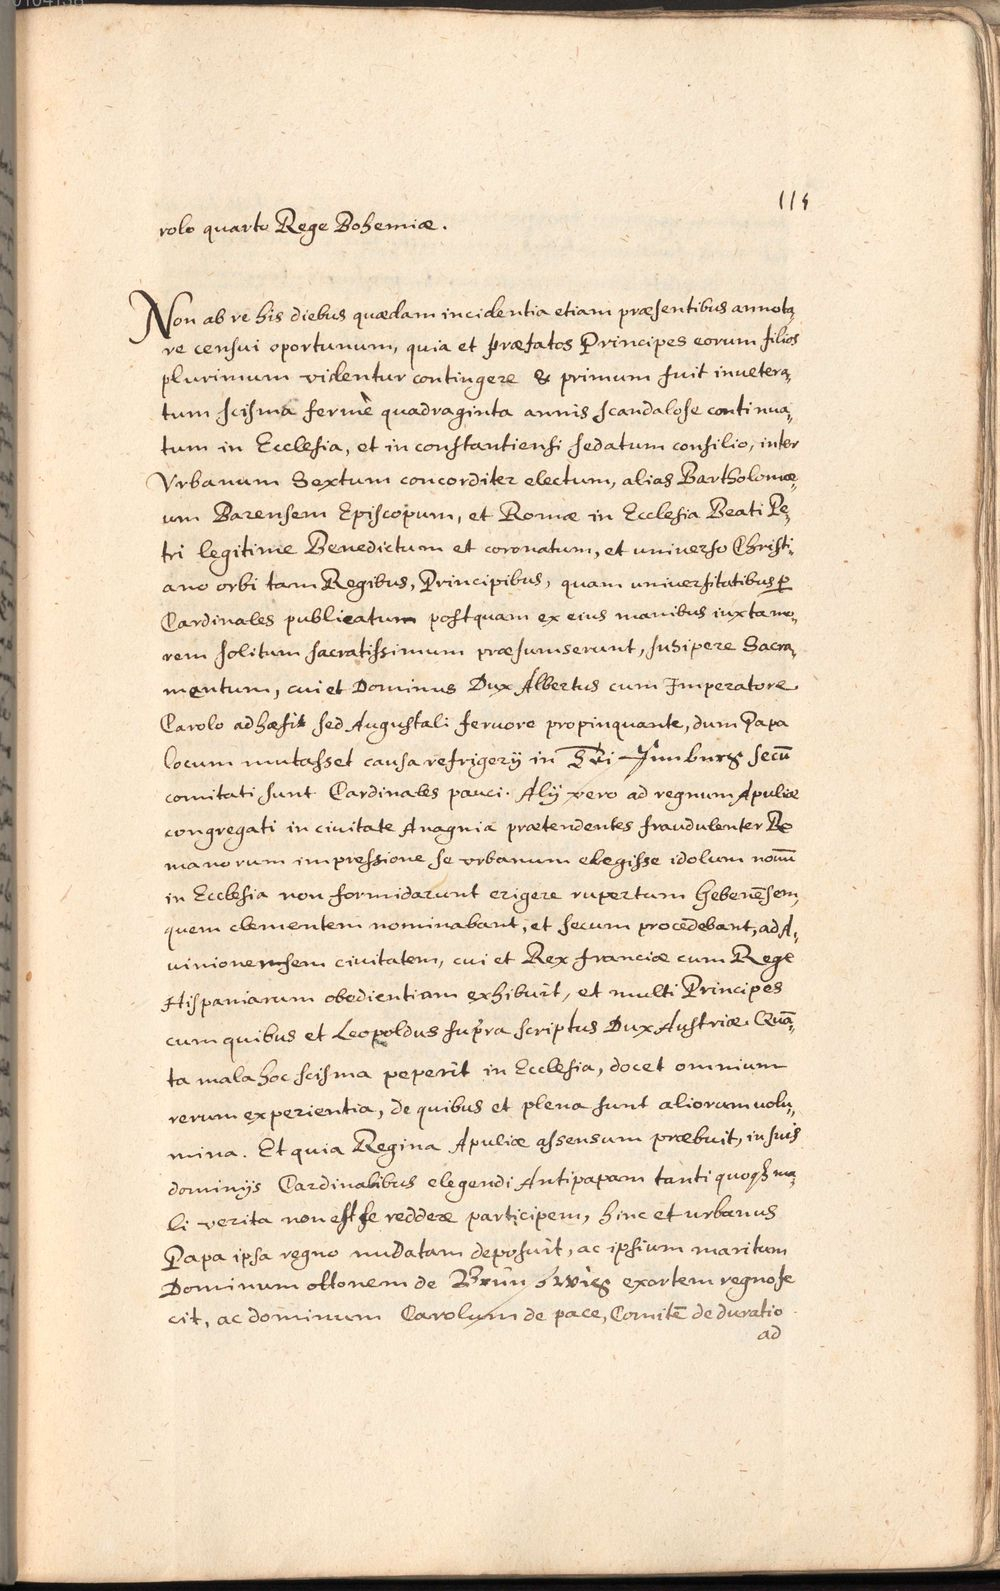 114
rolo quarto Rege Bohemiæ.
Non ab re his diebus quædam incidentia etiam præsentibus annota,
re censui oportunum, quia et præfatos Principes eorum filios
plurimum videntur contingere & primum fuit invetera,
tum scisma fermè quadraginta annis scandalose continua,
tum in Ecclesia, et in constantiensi sedatum consilio, inter
Vrbanum Sextum concorditer electum, alias Bartholomæ,
um Barensem Episcopum, et Romæ in Ecclesia Beati Pe,
tri legitime Benedictum et coronatum, et universo Christi,
ano orbi tam Regibus, Principibus, quam universitatibus p
Cardinales publicatum postquam ex eius manibus iuxta mo,
rem solitum sacratissimum præsumserunt, susipere Sacra,
mentum, cui et Dominus Dux Albertus cum Imperatore
Carolo adhæsit sed Augustali fervore propinquante, dum Papa
locum mutasset causa refrigerÿ in secū
comitati sunt Cardinales pauci. Alÿ vero ad regnum Apuliæ
congregati in civitate Anagnia prætendentes fraudulenter Ro
manorum impressione se vrbanum elegisse idolum nouū
in Ecclesia non formidarunt erigere rupertum Gebenēsem,
quem clementem nominabant, et secum procedebant, ad A,
uinionensem civitatem, cui et Rex franciæ cum Rege
Hispaniarum obedientiam exhibuit, et multi Principes
cum quibus et Leopoldus supra scriptus Dux Austriæ. Quā,
ta mala hoc scisma peperit in Ecclesia, docet omnium
rerum experientia, de quibus et plena sunt aliorum uolu,
mina. Et quia Regina Apuliæ assensum præbuit, in suis
dominÿs Cardinalibus elegendi Antipapam tanti quoqз ma,
li verita non est se reddere participem, hinc et urbanus
Papa ipsa regno nudatam deposuit, ac ipsium maritum
Dominum ottonem de Brunswieg exortem regno fe
cit, ac dominum Carolum de pace, Comitē de duratio
ad